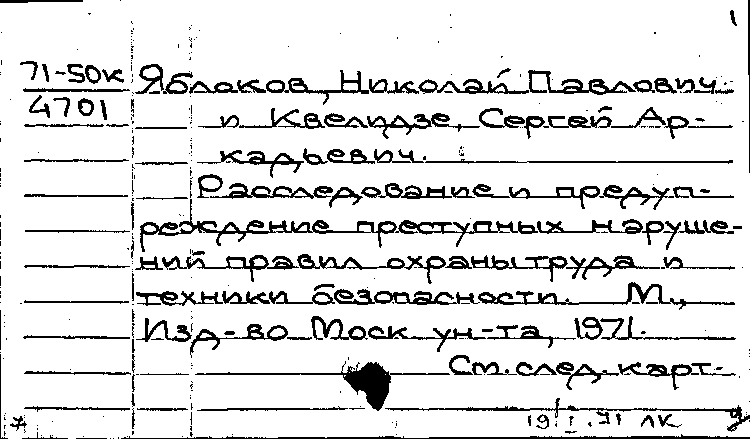 1
71-50к Яблоков, Николай Павлович
4701 и Квелидзе, Сергей Ар-
кадьевич.
Расследование и предуп-
реждение преступных наруше-
ний правил охраны труда и
техники безопасности. М.,
Изд-во Моск ун-та, 1971.
См. след. карт.
19/I.71 ЛК